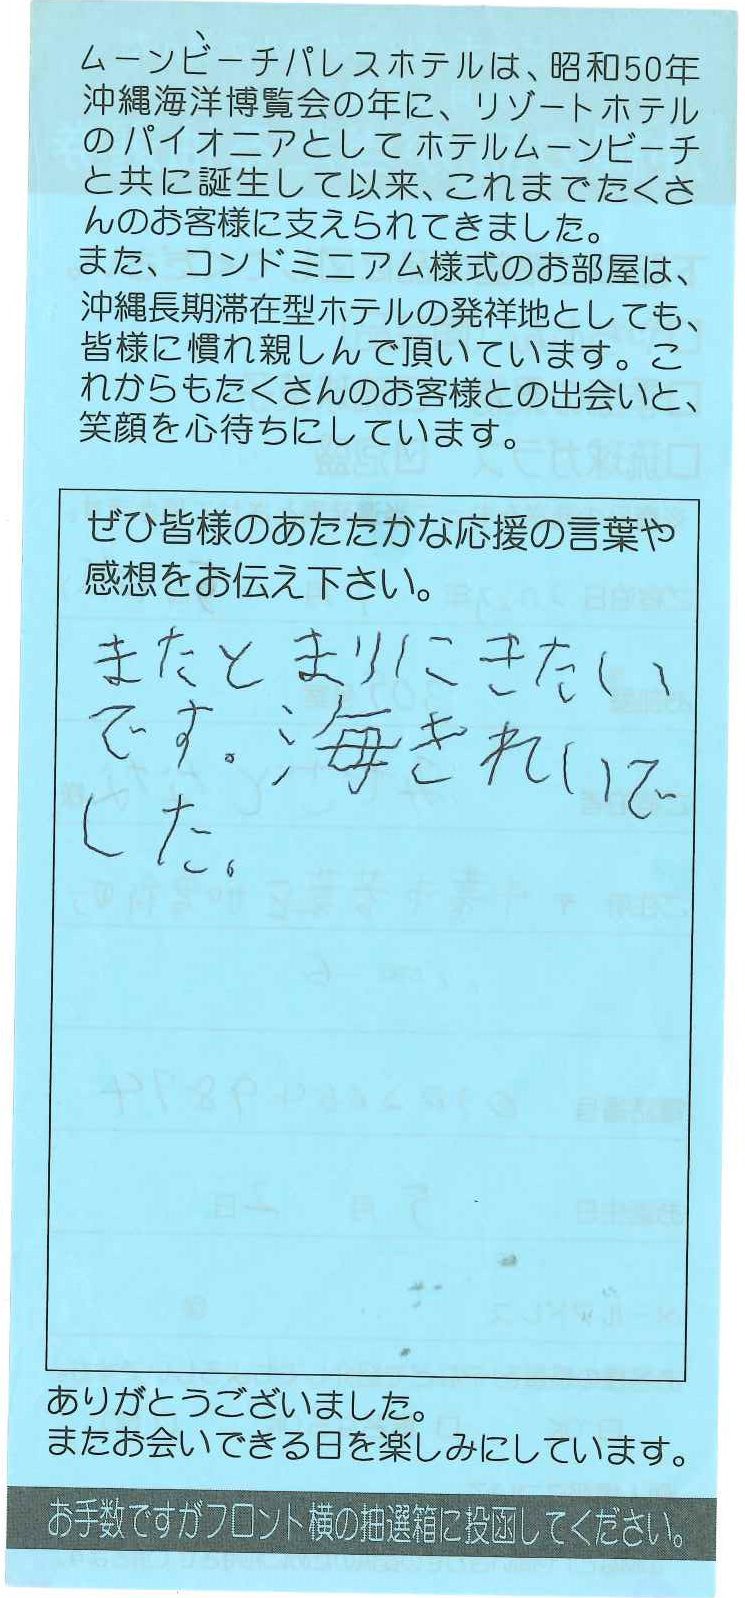 ムーンビーチパレスホテルは、昭和50年
沖縄海洋博覧会の年に、リゾートホテル
のパイオニアとしてホテルムーンビーチ
と共に誕生して以来、これまでたくさ
んのお客様に支えられてきました。
また、コンドミニアム様式のお部屋は、
沖縄長期滞在型ホテルの発祥地としても、
皆様に慣れ親しんで頂いています。こ
れからもたくさんのお客様との出会いと、
笑顔を心待ちにしています。
ぜひ皆様のあたたかな応援の言葉や
感想をお伝え下さい。
またとまりにきたい
です。海きれいで
した。
ありがとうございました。
またお会いできる日を楽しみにしています。
お手数ですがフロント横の抽選箱に投函してください。